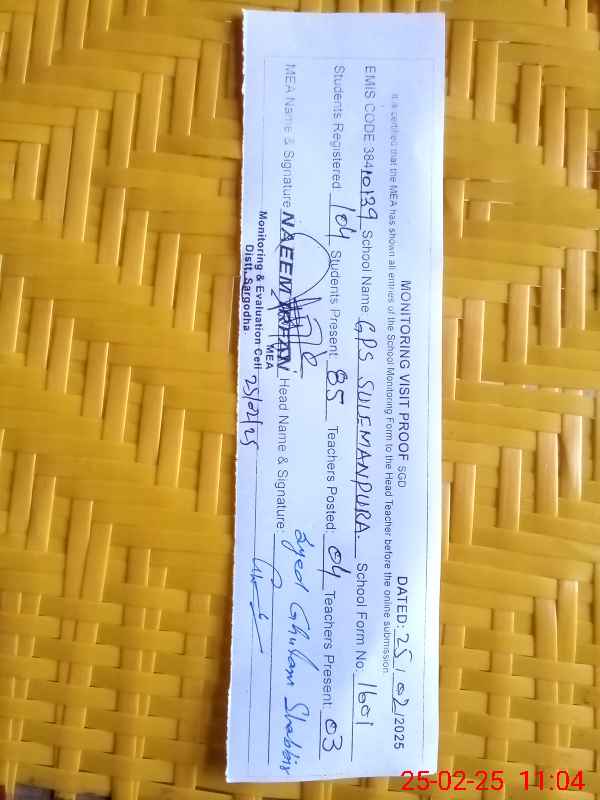 MONITORING VISIT PROOF SGD DATED: 25/02/2025
It is certified that the MEA has shown all entries of the School Monitoring Form to the Head Teacher before the online submission.
EMIS CODE 38410139 School Name GPS SULEMANPURA. School Form No. 1601
Students Registered 104 Students Present: 85 Teachers Posted: 04 Teachers Present: 03
MEA Name & Signature NAEEM IRFAN Head Name & Signature: Syed Ghulam Shabbir
MEA
Monitoring & Evaluation Cell
Distt. Sargodha.
25/02/25
25-02-25 11:04